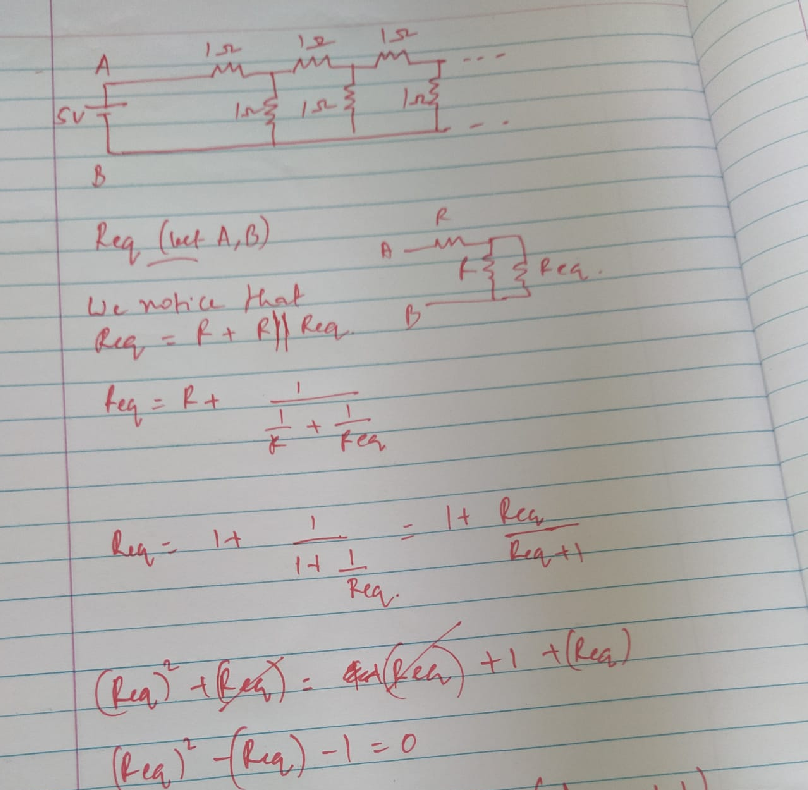 1Ω 1Ω 1Ω
A ...
5V 1Ω 1Ω 1Ω
B ...
Req (bet A,B)
R
A R Req.
B
We notice that
Req = R + R || Req.
Req = R + 1 / (1/R + 1/Req)
Req = 1 + 1 / (1 + 1/Req.) = 1 + Req / (Req + 1)
(Req)² + (Req) = (Req) + 1 + (Req)
(Req)² - (Req) - 1 = 0